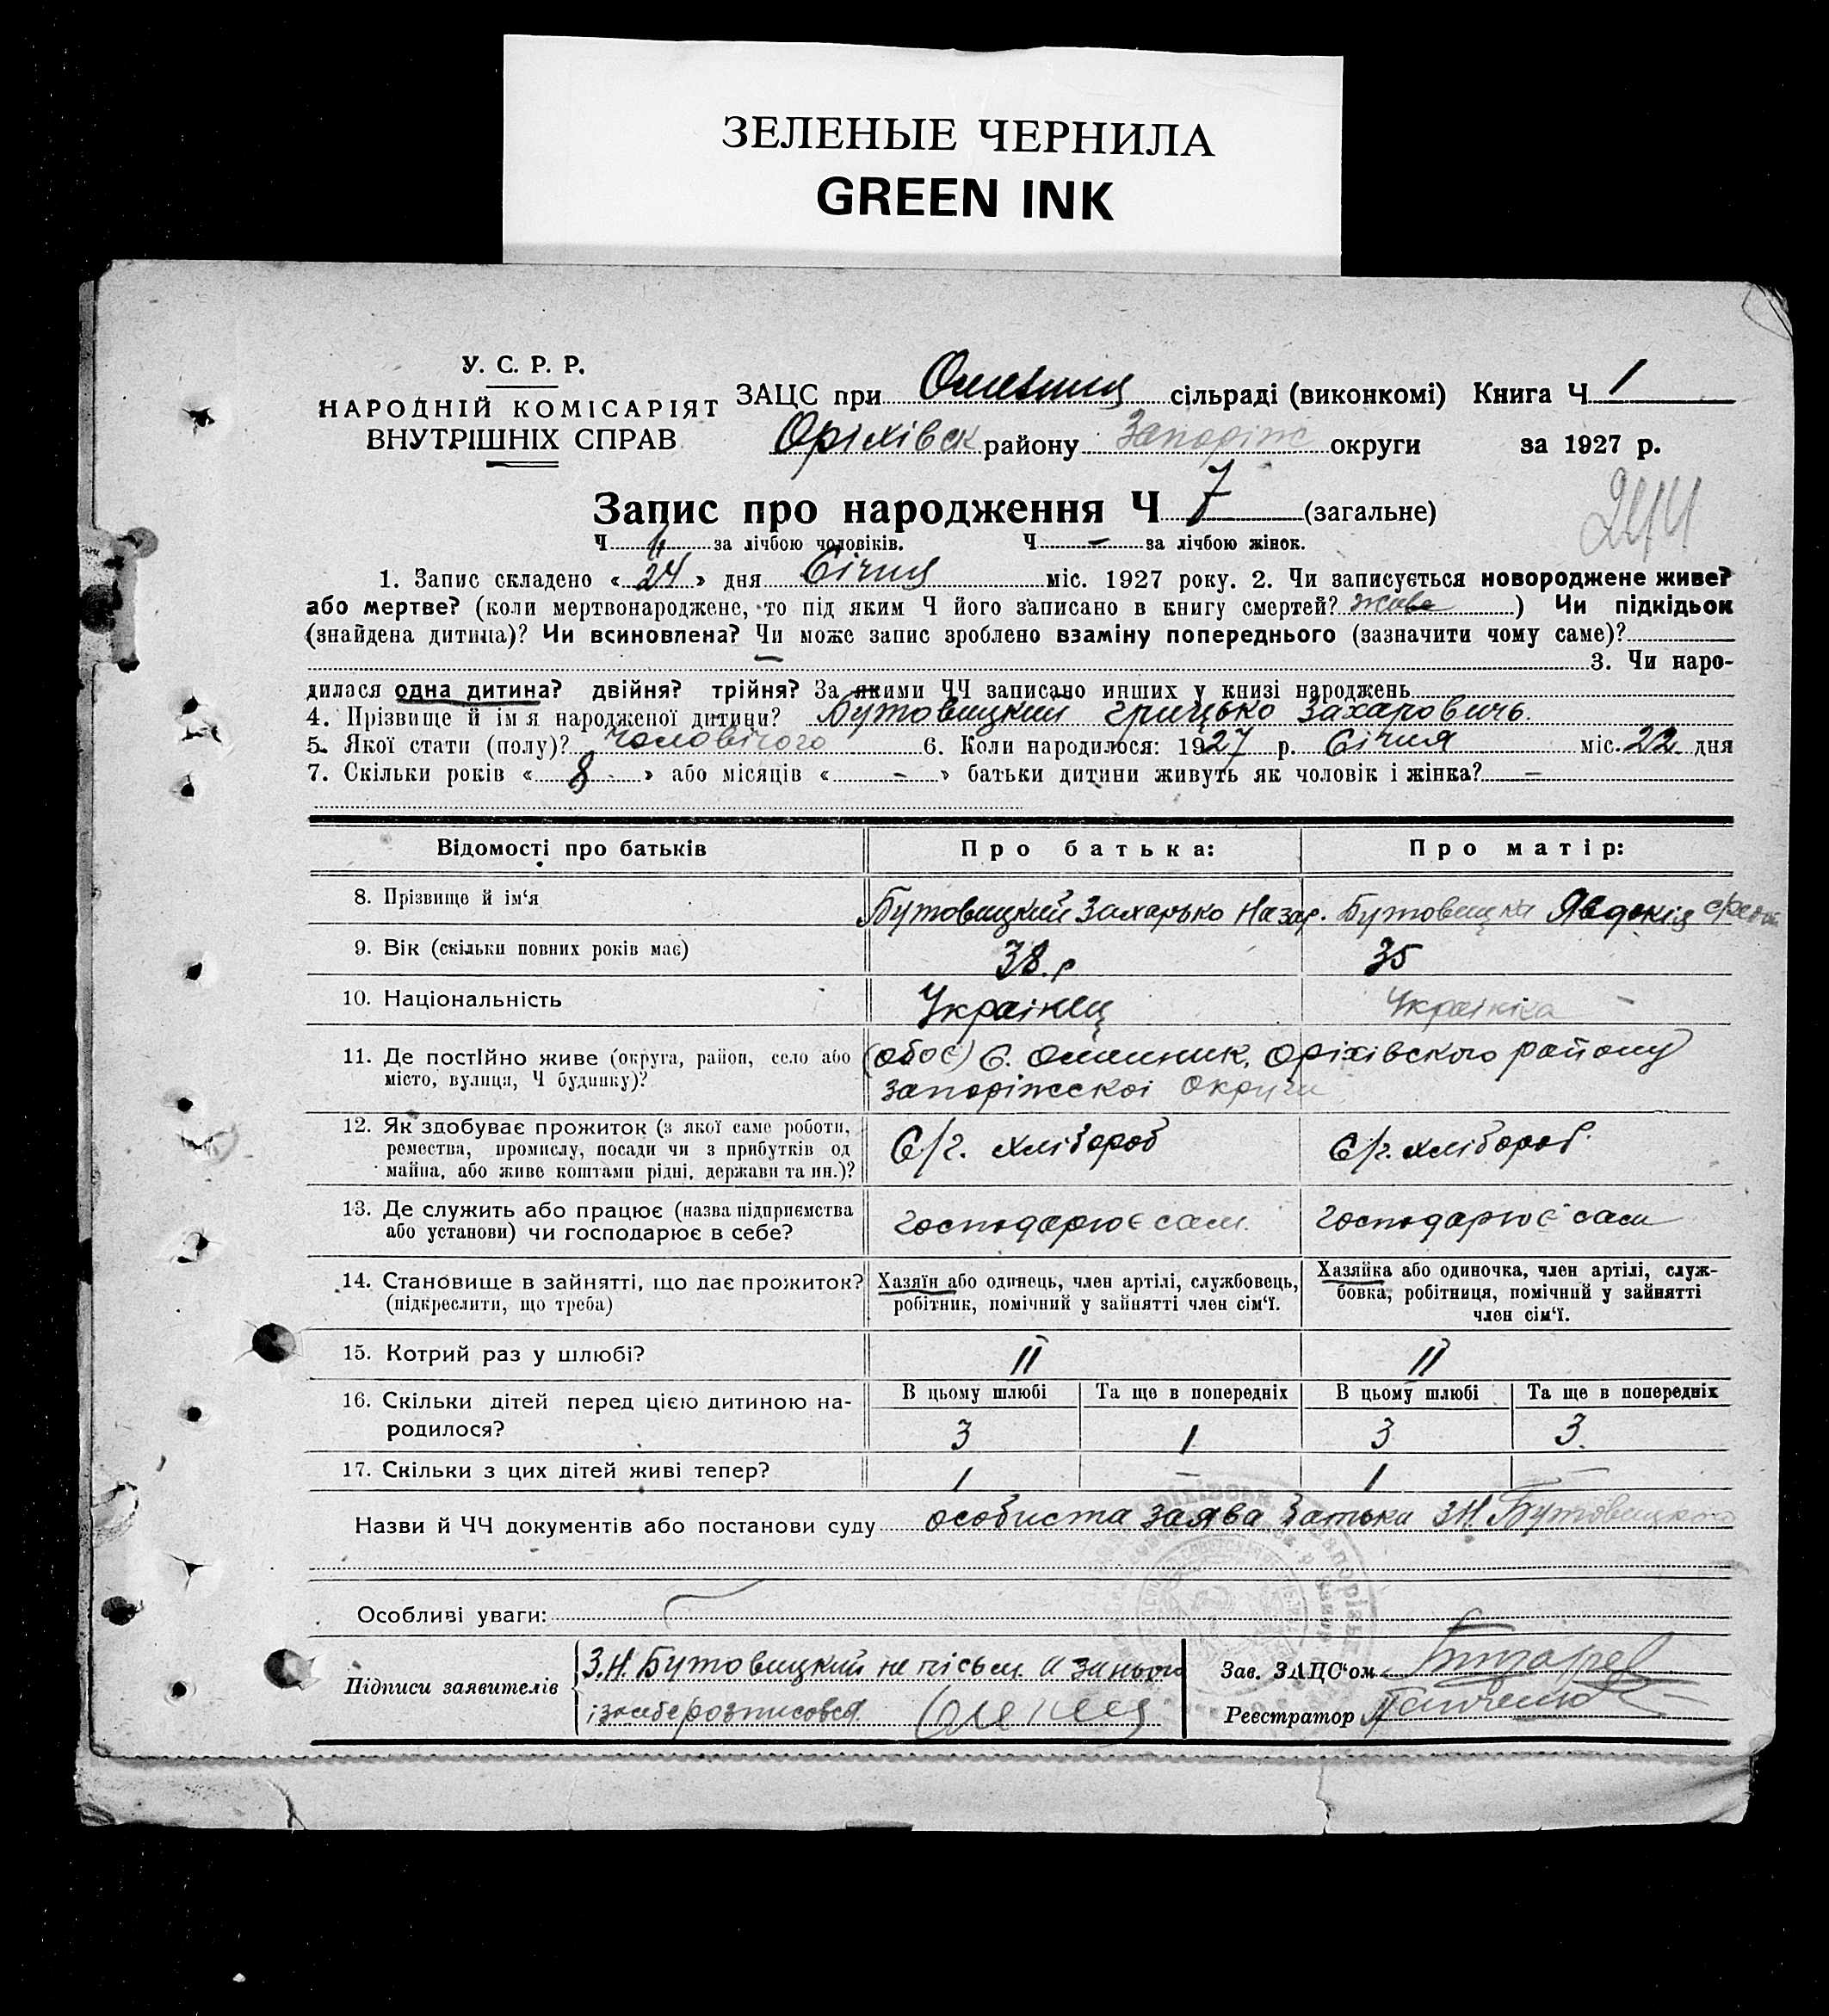 ЗЕЛЕНЫЕ ЧЕРНИЛА
GREEN INK
У. С. Р. Р.
НАРОДНІЙ КОМІСАРІЯТ
ВНУТРІШНІХ СПРАВ
ЗАЦС при сільраді (виконкомі) Книга Ч 1
Оріхівск району Запоріж округи за 1927 р.
Запис про народження Ч 7 (загальне)
244
Ч 4 за лічбою чоловіків. Ч - за лічбою жінок.
1. Запис складено « 24 » дня Січня міс. 1927 року. 2. Чи записується новороджене живе?
або мертве? (коли мертвонароджене, то під яким Ч його записано в книгу смертей? живе ) Чи підкідьок
(знайдена дитина)? Чи всиновлена? Чи може запис зроблено взаміну попереднього (зазначити чому саме)?
— 3. Чи наро-
дилася одна дитина? двійня? трійня? За якими ЧЧ записано инших у книзі народжень
4. Прізвище й ім я народженої дитини? Бутовицкий Грицько Захарович
5. Якої стати (полу)? Чоловічого 6. Коли народилося: 1927 р. Січня міс. 22 дня
7. Скільки років « 8 » або місяців « - » батьки дитини живуть як чоловік і жінка? —
Відомості про батьків Про батька: Про матір:
8. Прізвище й ім‘я Бутовицкий Захарько Назар. Бутовицка Явдокія
9. Вік (скільки повних років має) 38.р 35
10. Національність Українец Українка
11. Де постійно живе (округа, район, село або (обоє) С. Омельник, Оріхівского району
місто, вулиця, Ч будинку)? Запоріжскоі Округи
12. Як здобуває прожиток (з якої саме роботи, С/г. хлібороб С/г. хлібороб.
ремества, промислу, посади чи з прибутків од
майна, або живе коштами рідні, держави та ин.)?
13. Де служить або працює (назва підприємства господарює сам. господарює сам
або установи) чи господарює в себе?
14. Становище в зайнятті, що дає прожиток? Хазяїн або одинець, член артілі, службовець, Хазяйка або одиночка, член артілі, служ-
(підкреслити, що треба) робітник, помічний у зайнятті член сім‘ї. бовка, робітниця, помічний у зайнятті
член сім‘ї.
15. Котрий раз у шлюбі? II II
16. Скільки дітей перед цією дитиною на- В цьому шлюбі Та ще в попередніх В цьому шлюбі Та ще в попередніх
родилося? 3 1 3 3.
17. Скільки з цих дітей живі тепер? 1 — 1 —
Назви й ЧЧ документів або постанови суду особиста заява батька З.Н. Бутовицкого
Особливі уваги:
Підписи заявителів З.Н. Бутовицкий не пісьм. а за нього Зав. ЗАЦС‘ом
і за себе розписовся Реєстратор